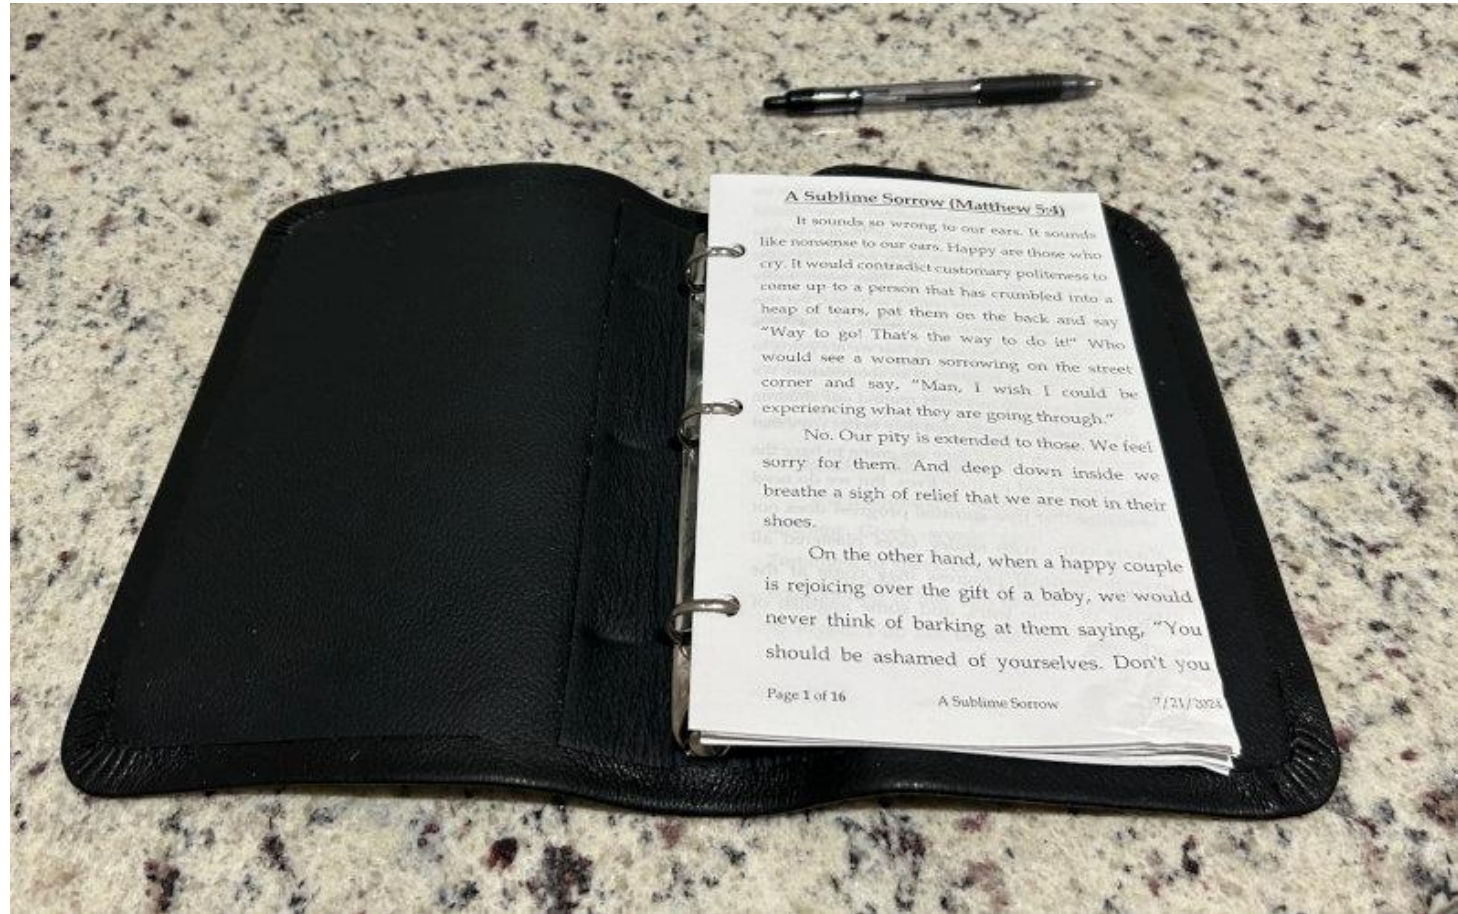 A Sublime Sorrow (Matthew 5:4)
It sounds so wrong to our ears. It sounds
like nonsense to our ears. Happy are those who
cry. It would contradict customary politeness to
come up to a person that has crumbled into a
heap of tears, pat them on the back and say
"Way to go! That's the way to do it!" Who
would see a woman sorrowing on the street
corner and say, "Man, I wish I could be
experiencing what they are going through."
No. Our pity is extended to those. We feel
sorry for them. And deep down inside we
breathe a sigh of relief that we are not in their
shoes.
On the other hand, when a happy couple
is rejoicing over the gift of a baby, we would
never think of barking at them saying, "You
should be ashamed of yourselves. Don't you
Page 1 of 16 A Sublime Sorrow 7/21/2024